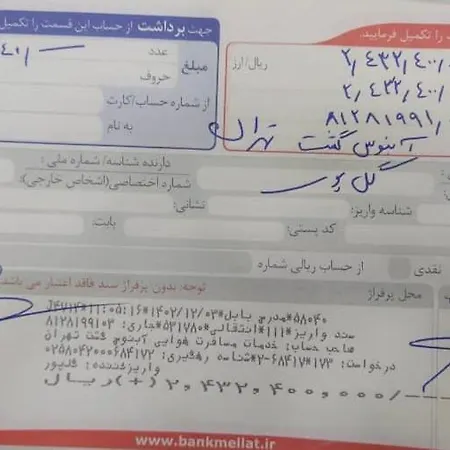 جهت برداشت از حساب این قسمت را تکمیل
را تکمیل فرمایید.
عدد
مبلغ
حروف
ریال/ارز
از شماره حساب/کارت
به نام
۲,۴۳۲,۴۰۰,
۲,۴۳۲,۴۰۰,
۸۱۲۸۱۹۹۱
آبنوس گشت تهران
گل پور
دارنده شناسه/ شماره ملی:
شماره اختصاصی(اشخاص خارجی):
نشانی:
شناسه واریز:
کد پستی:
بابت:
نقدی
از حساب ریالی شماره
توجه: بدون پرفراژ سند فاقد اعتبار می باشد
محل پرفراژ
۵۸۰۴۰*مدرج بابل*۱۴۰۲/۱۲/۰۳*۱۱:۰۵:۱۶
سند واریز*۱۱۱*انتقالی*۵۳۱۷۸۰*جاری: ۸۱۲۸۱۹۹۱۰۳
صاحب حساب: خدمات مسافرت هوایی آبنوس گشت تهران
درخواست: ۱۷۳*۶۸۴۱۷-۲*شناسه رهگیری: ۰۲۵۸۰۴۲۰۰۰۶۸۴۱۷۲
واریزکننده: گلپور
۲,۴۳۲,۴۰۰,۰۰۰/--- (+) ریال
www.bankmellat.ir